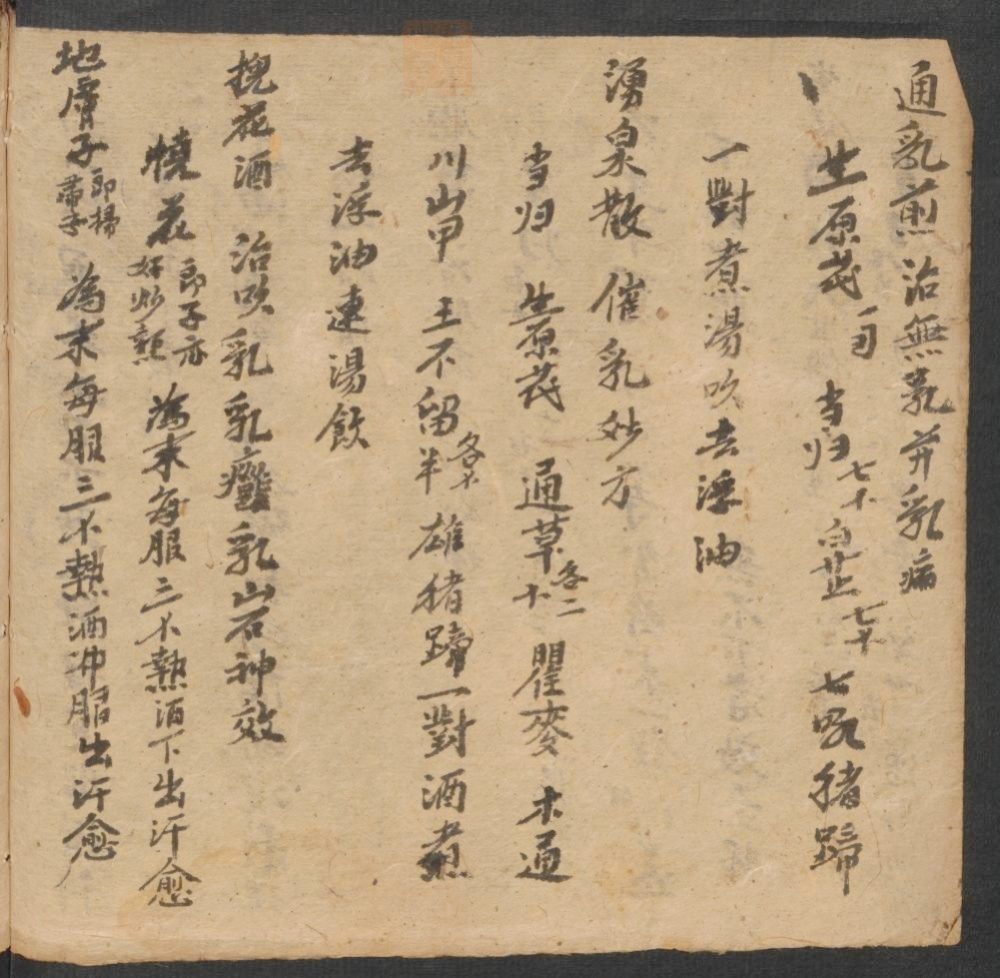 通乳煎治無乳并乳病
生原芪 当归 七卜 白芷 七卜 七眼猪蹄
一對煮湯吹去浮油
湧泉散 催乳妙方
当归 生原芪 通草各二卜 瞿麥 木通
川山甲 王不留半 各卜 雄猪蹄一對酒煮
去浮油連湯飲
槐花酒 治吹乳乳癰乳岩神效
槐花即子亦好炒熟 為末每服三卜熱酒下出汗愈
地膚子即掃帚子 為末每服三卜熱酒冲服出汗愈